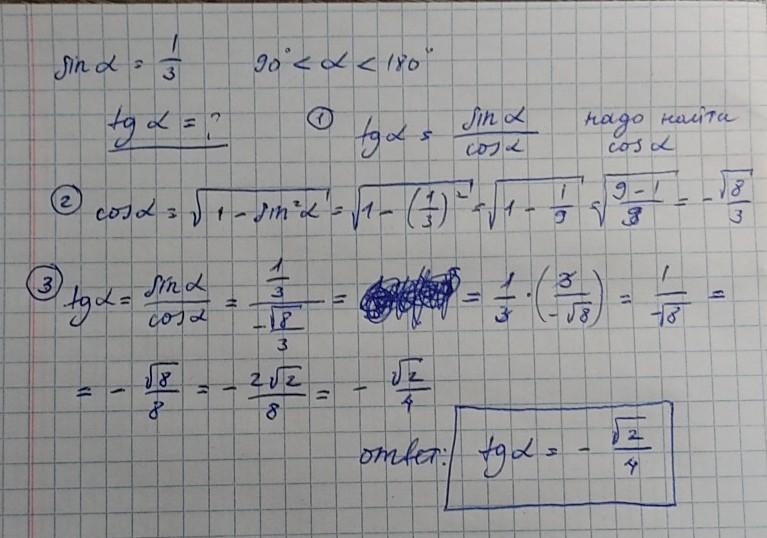 sin α = 1/3   90° < α < 180°
tg α = ?   ① tg α = sin α / cos α   надо найти cos α
② cos α = √(1 - sin²α) = √(1 - (1/3)²) = √(1 - 1/9) = √((9-1)/9) = -√8/3
③ tg α = sin α / cos α = (1/3) / (-√8/3) = = 1/3 · (3/-√8) = 1/-√8 =
= - √8/8 = - 2√2/8 = - √2/4
ответ: tg α = - √2/4